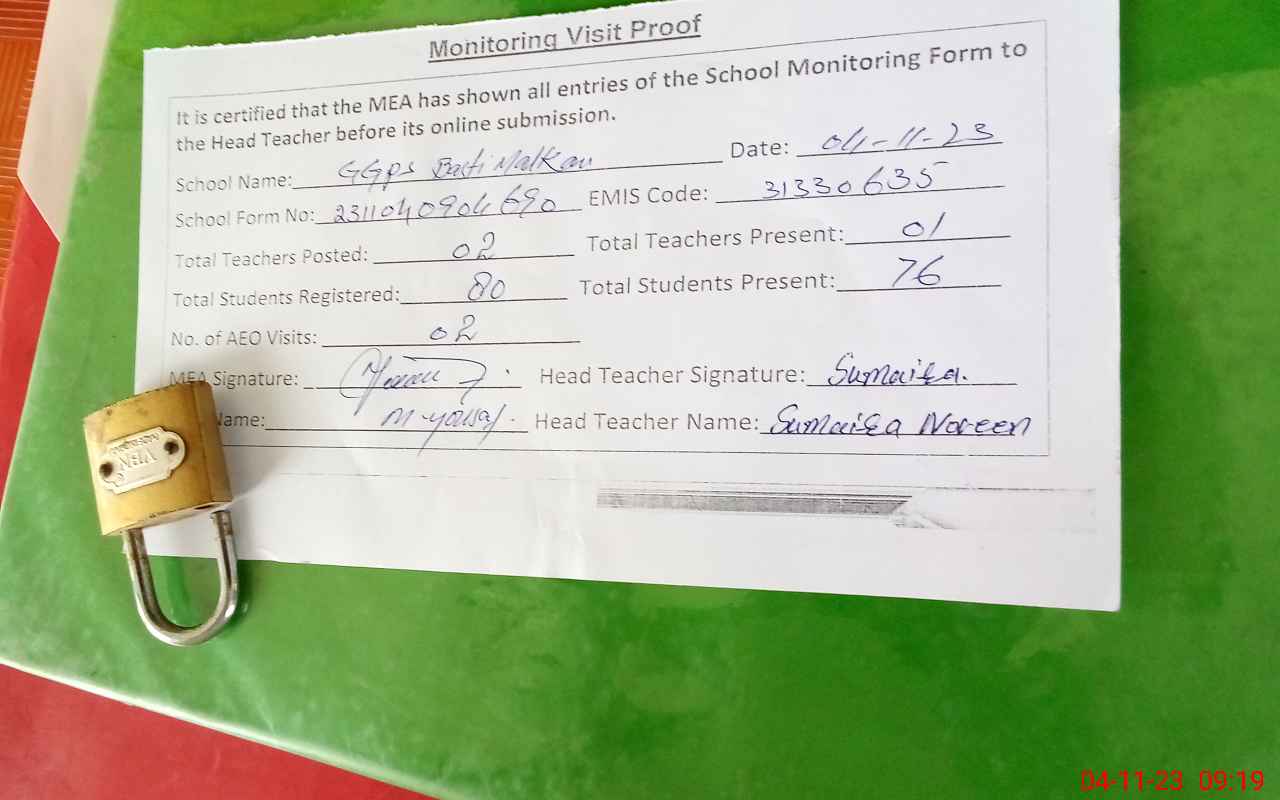 Monitoring Visit Proof
It is certified that the MEA has shown all entries of the School Monitoring Form to
the Head Teacher before its online submission.
School Name: GGPS Basti Malkan Date: 04-11-23
School Form No: 2311040904690 EMIS Code: 31330635
Total Teachers Posted: 02 Total Teachers Present: 01
Total Students Registered: 80 Total Students Present: 76
No. of AEO Visits: 02
MEA Signature: Head Teacher Signature: Sumaira.
Name: M-yousaf. Head Teacher Name: Sumaira Noreen
04-11-23 09:19